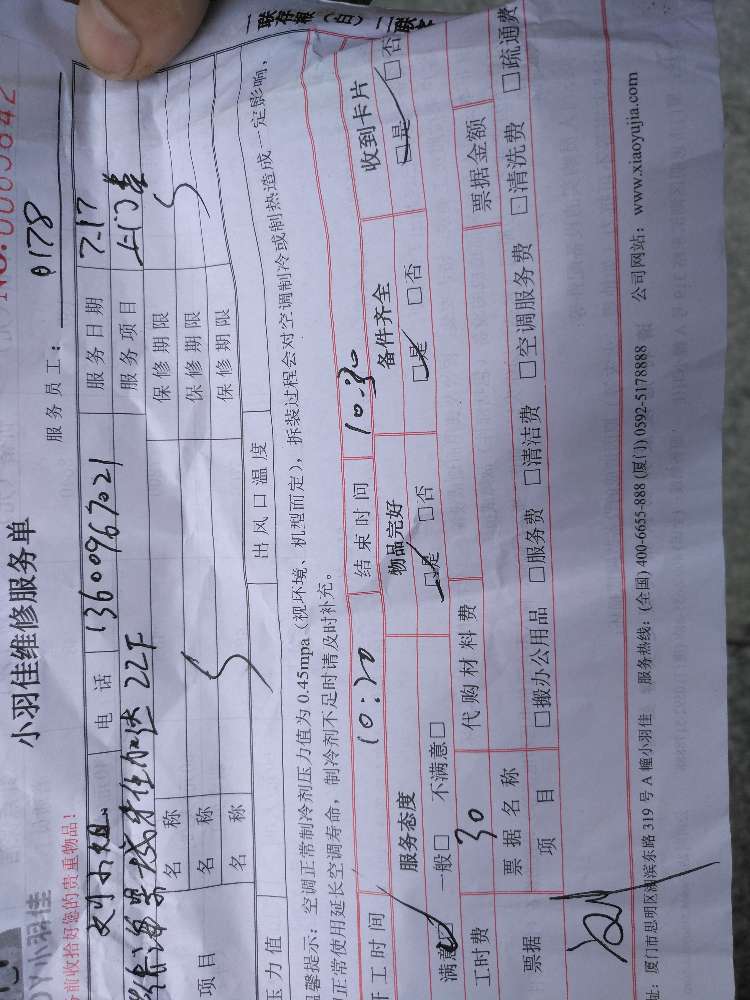 一联存根（白）二联
小羽佳维修服务单
服务员工： 0178
前收拾好您的贵重物品！
电话 13600967021 服务日期 7.17
22F 服务项目 上门费
名称 保修期限
项目 名称 保修期限
名称 保修期限
压力值 出风口温度
温馨提示：空调正常制冷剂压力值为 0.45mpa（视环境、机型而定），拆装过程会对空调制冷或制热造成一定影响，
正常使用延长空调寿命，制冷剂不足时请及时补充。
开工时间 10:20 结束时间 10:30
服务态度 物品完好 备件齐全 收到卡片
满意□ 一般□ 不满意□ □是 □否 □是 □否 □是 □否
工时费 30 代购材料费 票据金额
票据名称
票据 项目 □搬办公用品 □服务费 □清洁费 □空调服务费 □清洗费 □疏通费
址：厦门市思明区湖滨东路 319 号 A 幢小羽佳 服务热线：(全国) 400-6655-888 (厦门) 0592-5178888 公司网站：www.xiaoyujia.com